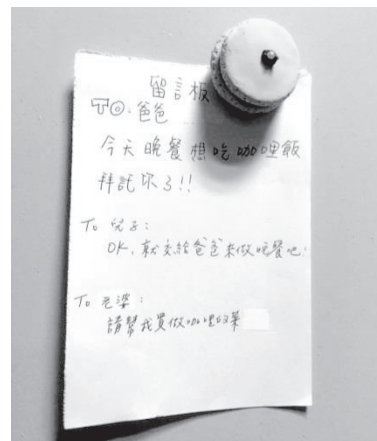 留言板
TO:爸爸
今天晚餐想吃咖哩飯
拜託你了!!
To 兒子：
OK，就交給爸爸來做晚餐吧!
To 老婆：
請幫我買做咖哩的菜